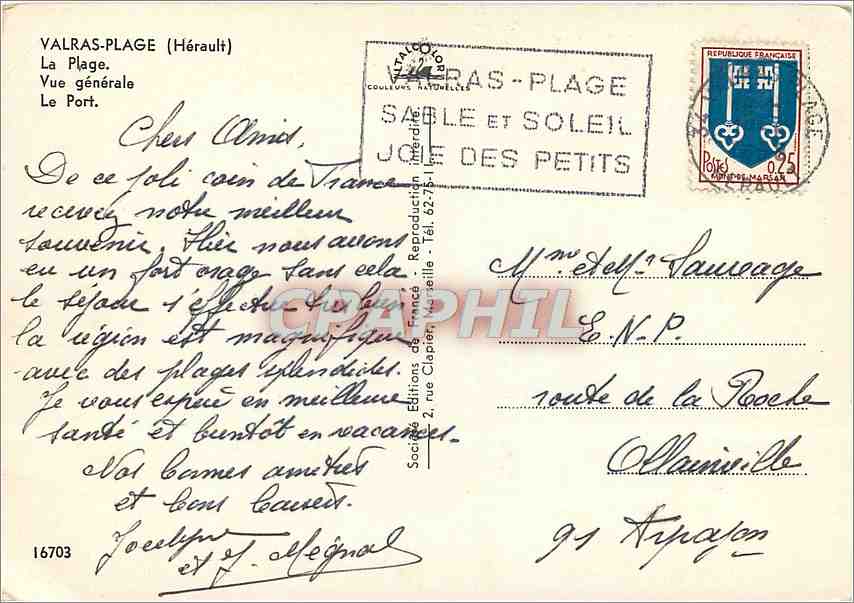 VALRAS-PLAGE (Hérault)
La Plage.
Vue générale
Le Port.
ALTALCOLOR
COULEURS NATURELLES
VALRAS-PLAGE
SABLE ET SOLEIL
JOIE DES PETITS
REPUBLIQUE FRANÇAISE
POSTES
0,25
MONT-DE-MARSAN
Chers Amis,
De ce joli coin de France
recevez notre meilleur
souvenir. Hier nous avons
eu un fort orage sans cela
le séjour s'effectue très bien
la région est magnifique
avec des plages splendides.
Je vous espère en meilleure
santé et bientôt en vacances.
Nos bonnes amitiés
et bons baisers.
Jocelyne
et J. Mégnal
16703
Société Editions de France - Reproduction interdite
2, rue Clapier, Marseille - Tél. 62-75-11
CPAPHIL
Mme et Mr Sauvage
E.N.P.
route de la Roche
Ollainville
91 Arpajon